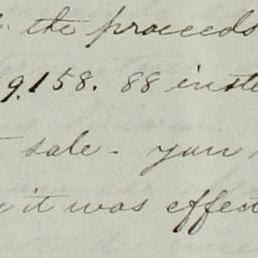 the proceeds
9.158. 88 inste
sale - your
it was effect